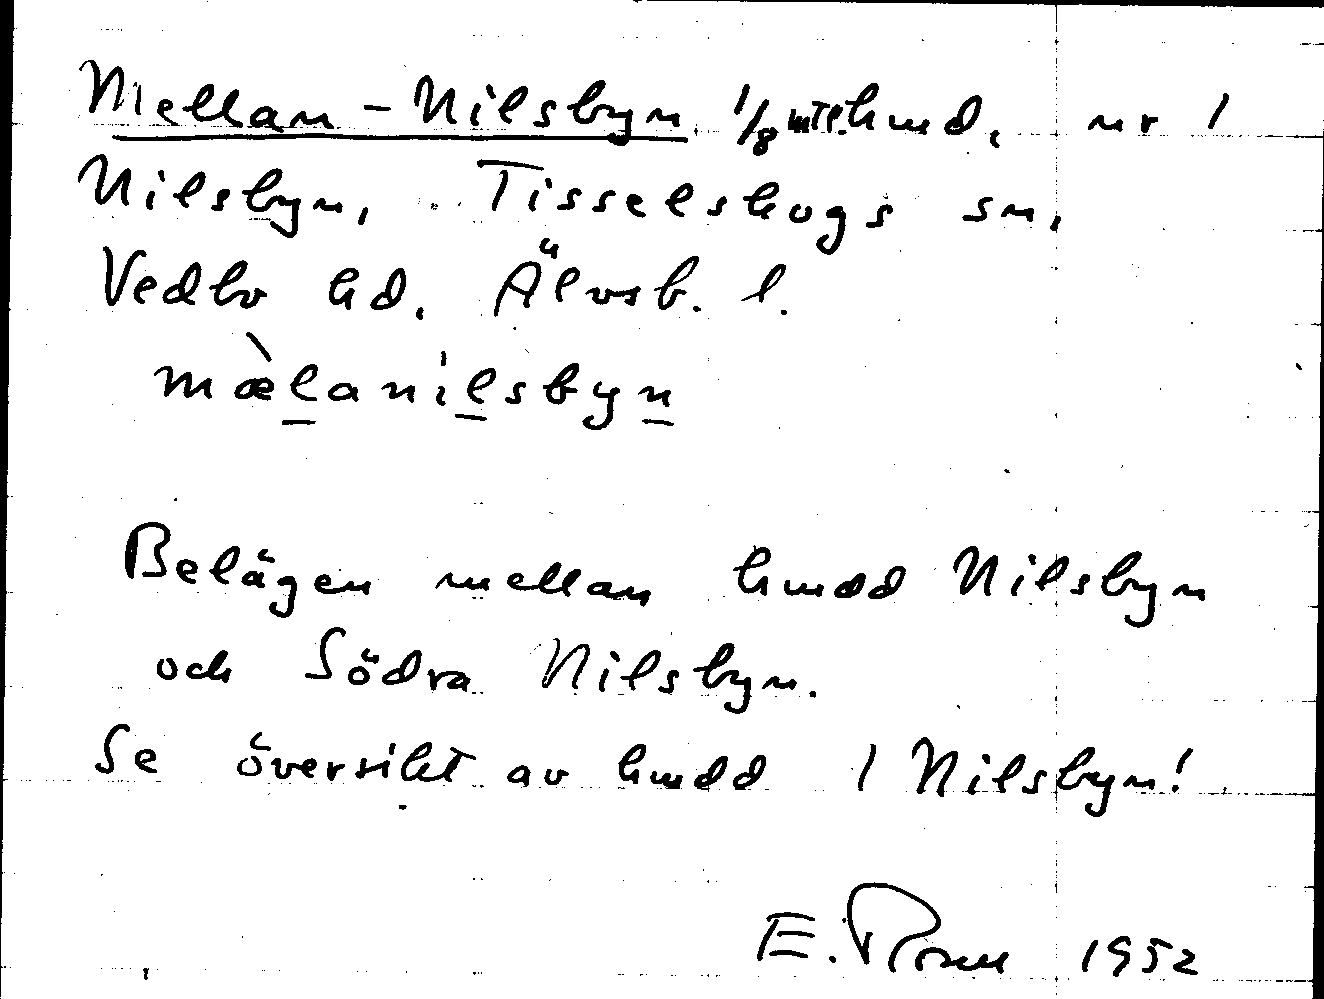 Mellan-Nilsbyn 1/8 mtl. hmd. nr 1
Nilsbyn, Tisselskogs sn,
Vedbo hd. Älvsb. l.
mæ̀lanilsbyn
Belägen mellan hmdd Nilsbyn
och Södra Nilsbyn.
Se översikt av hmdd 1 Nilsbyn!
E. 1952